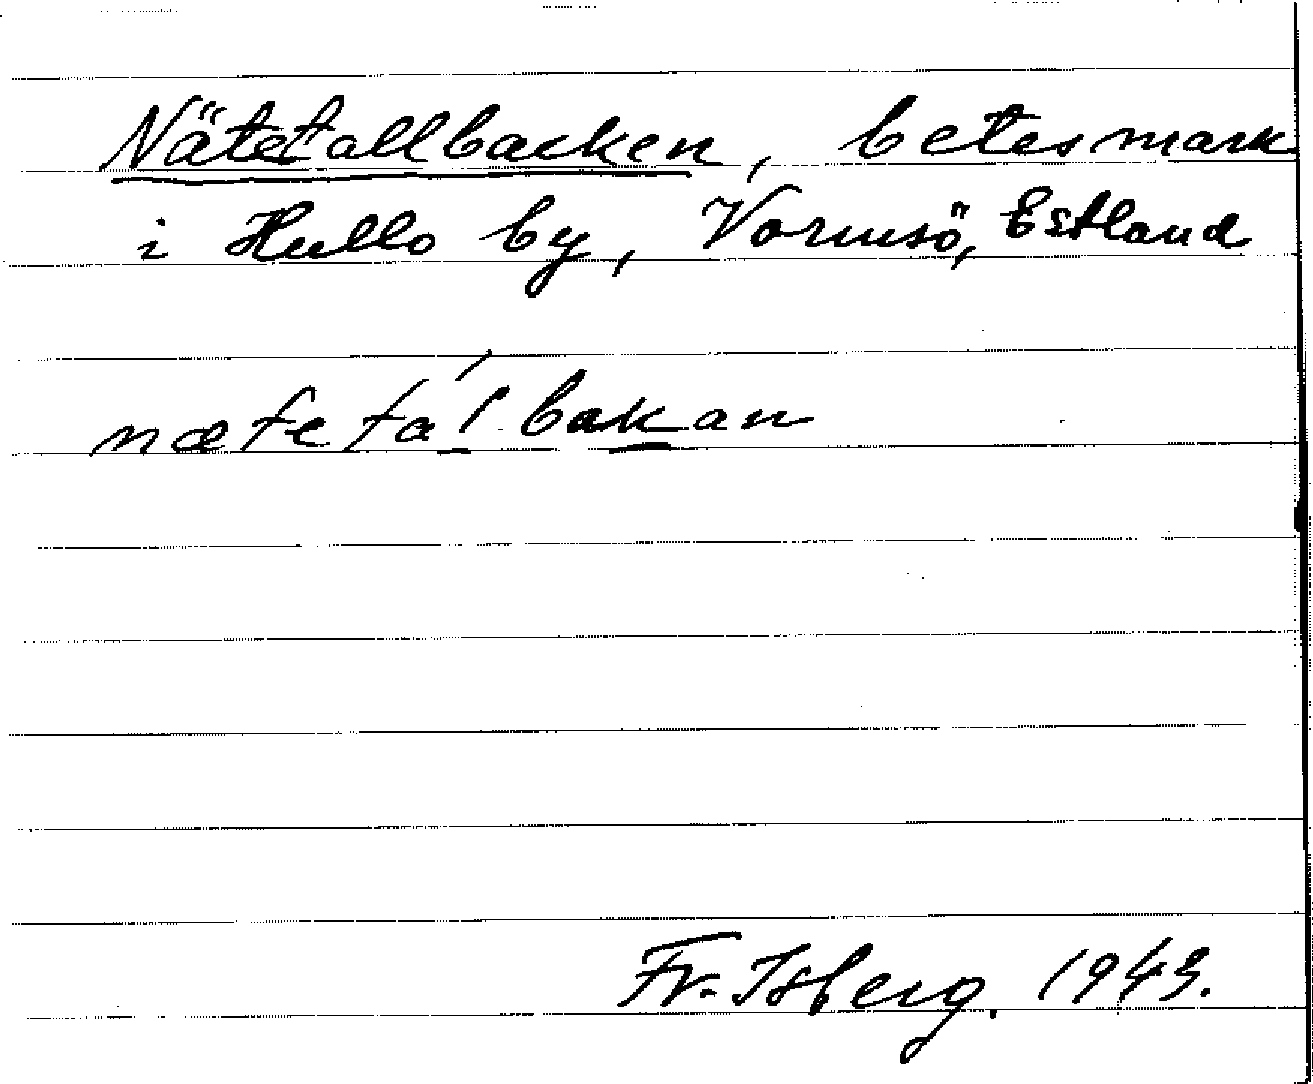 Nätetallbacken, betesmark
i Hullo by, Vormsö, Estland
nætetal̲bak̲an
Fr. Isberg. 1943.